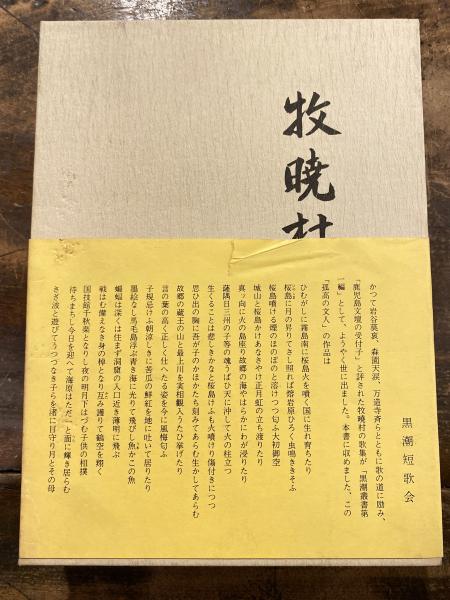 牧暁村
黒潮短歌会
かつて岩谷莫哀、森園天涙、万造寺斉らとともに歌の道に励み、
「鹿児島文壇の受付子」と評された牧暁村の歌集が「黒潮叢書第
一編」として、ようやく世に出ました。本書に収めました、この
「孤高の文人」の作品は
ひむがしに霧島南に桜島火を噴く国に生れ育ちたり
桜島に月の昇りてさし照れば熔岩原ひろく虫鳴ききそふ
桜島噴ける煙のほのぼのと溶けつつ匂ふ大初御空
城山と桜島かけあなさやけ正月虹の立ち渡りたり
真ッ向に火の島座り故郷の海やはらかにわが浸りたり
薩隅日三州の子等の魂うばひ天に沖して火の柱立つ
生くることは悲しきかなよ桜島けふも火噴けり傷付きにつつ
思ひ出の胸に吾が子のかほかたち刻みてあらむ生かしてあらむ
故郷の蔵王の山と最上川を実相観入うたひ挙げたり
言の葉の高く正しく仕へたる姿を今に風
子規忌にけふ朝涼しきに苦瓜の鮮紅を地に吐いて居りたり
墨絵なし馬毛島浮ぶ青き海に光りて飛びし魚かこの魚
蝙蝠は深くは住まず洞窟の入口近き薄明に飛ぶ
戦はむ備えなき身の棹となり互み護りて鶴空を翔く
国技館千秋楽となりし夜の明月下はづむ子供の相撲
待ちまちし今日を迎へて海原はただ一と面に輝き居らむ
さざ波と遊びてうつつなき子らを渚に月守り月とその母